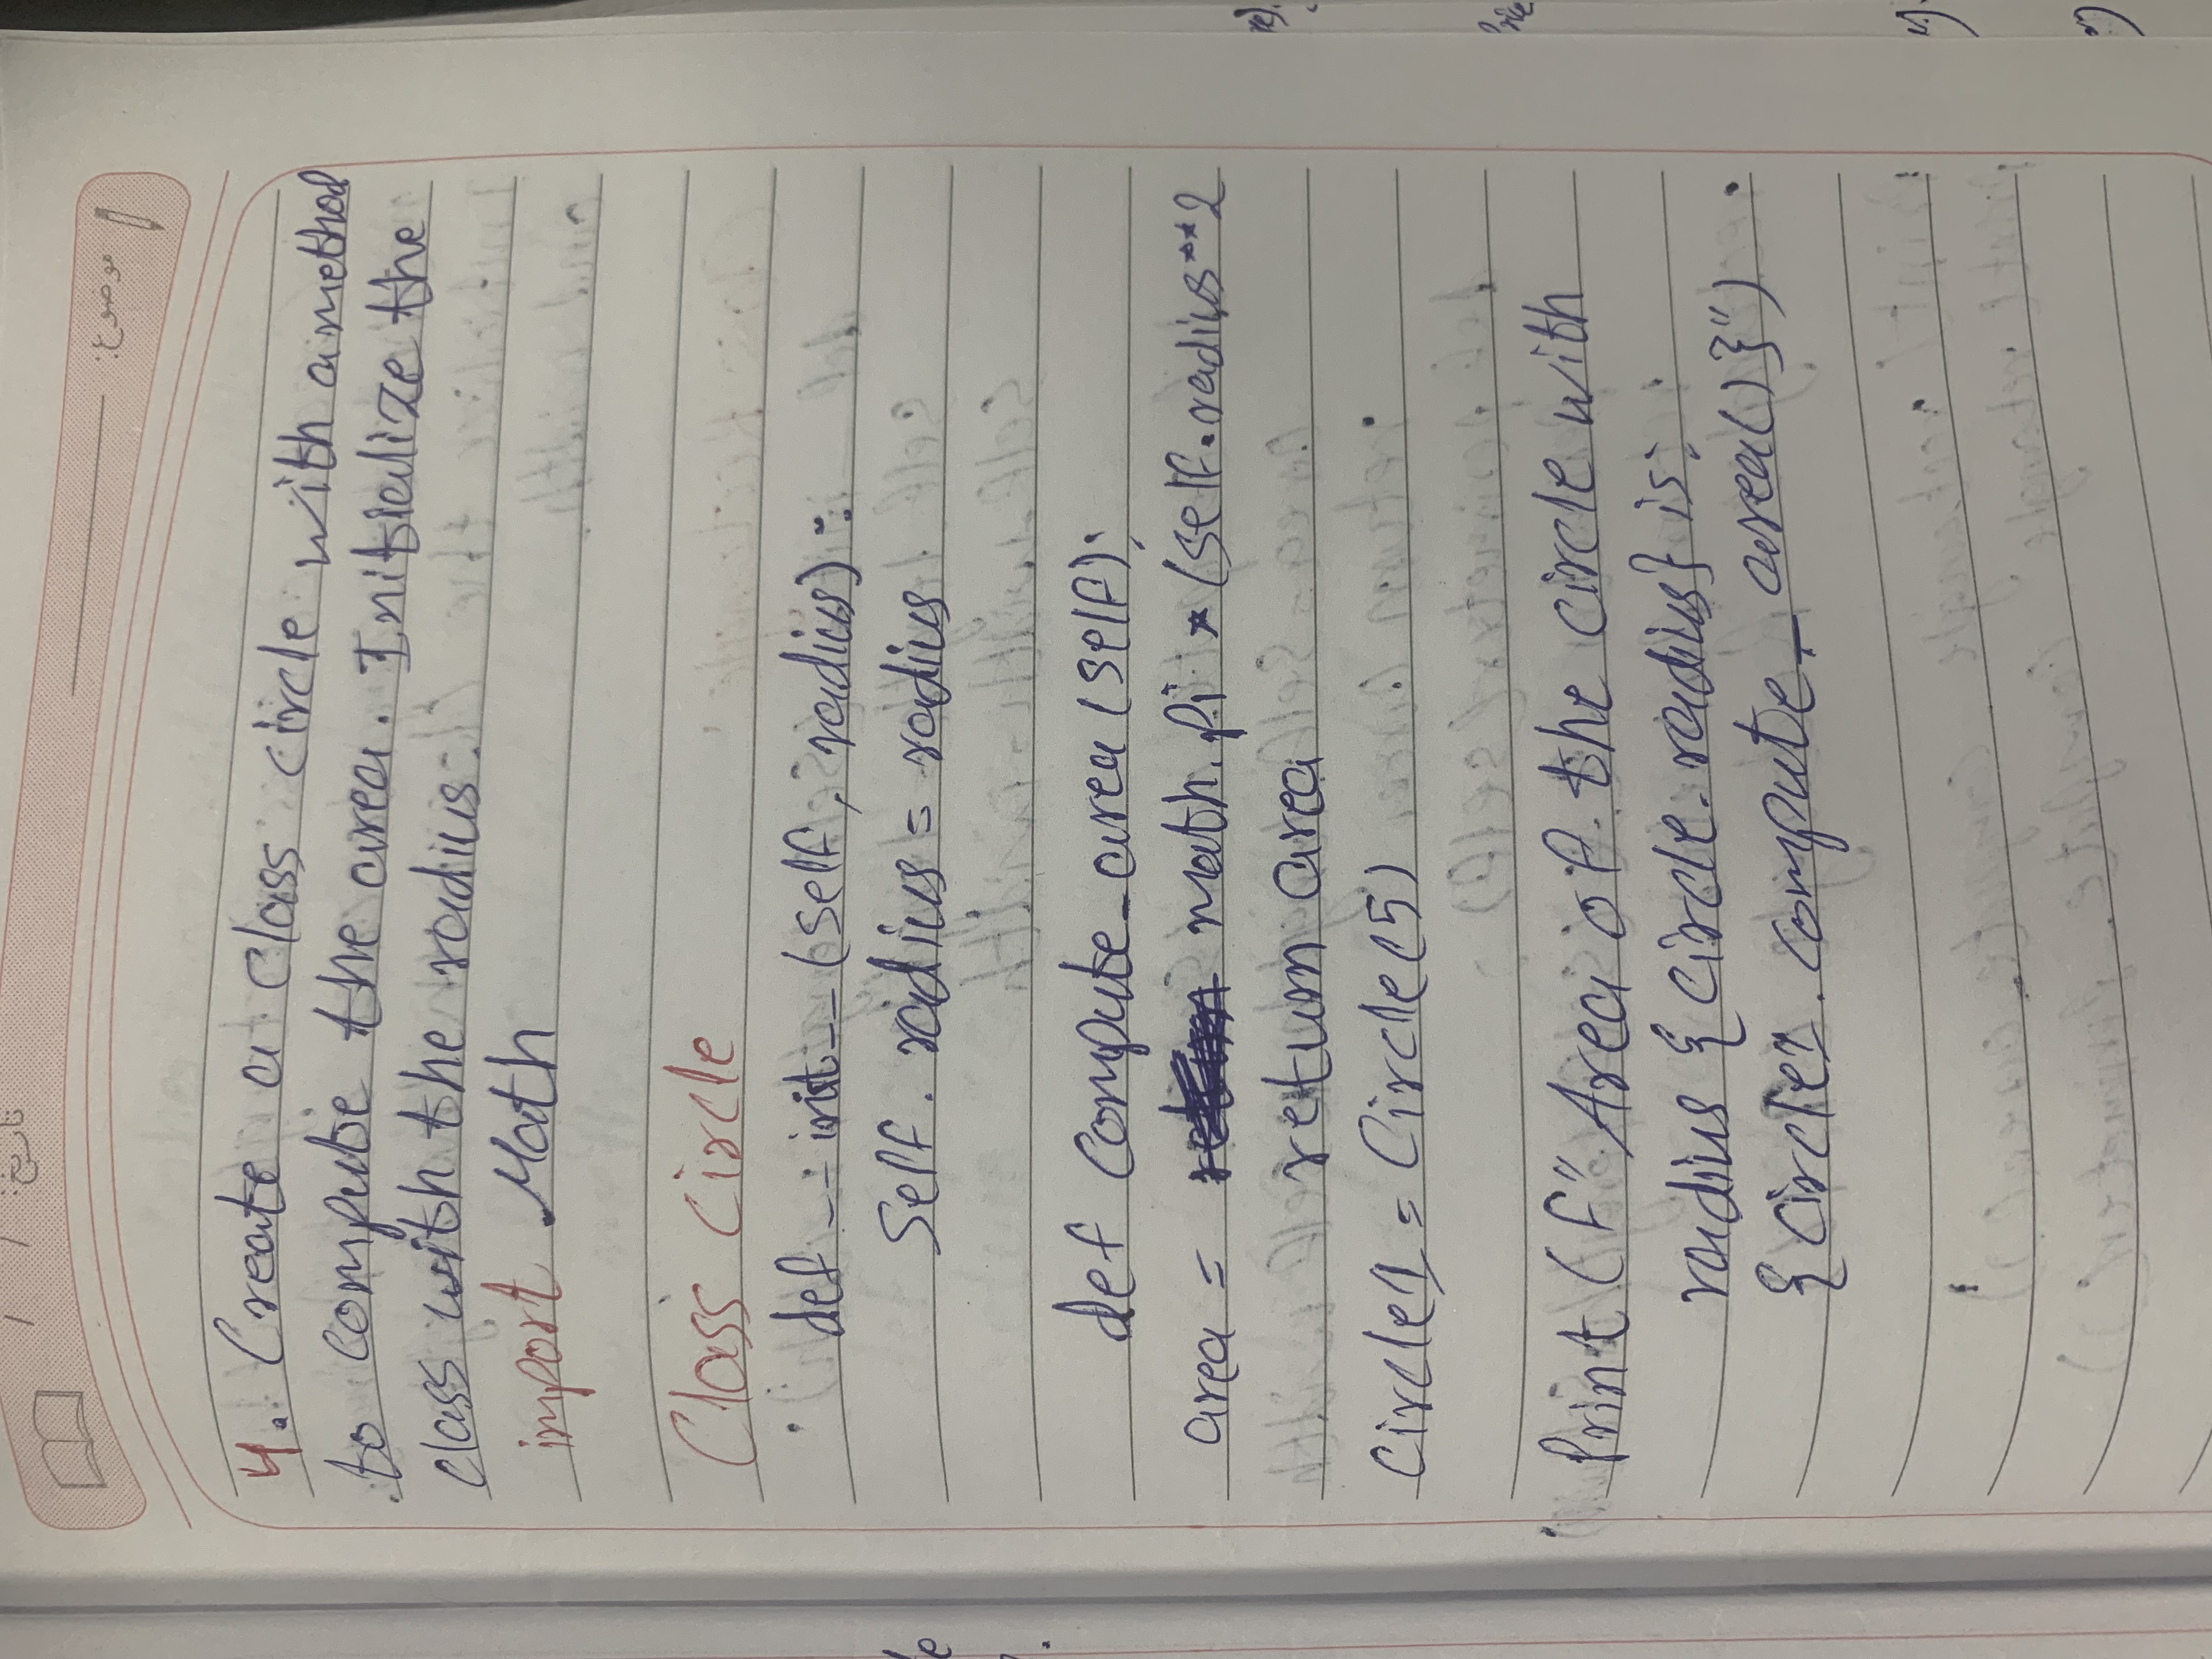 تاريخ: / /
موضوع:
4. Create a class circle with a method
to compute the area. Initialize the
class with the radius.
import Math
Class Circle
def __init__(self, radius):
Self.radius = radius
def compute_area(self):
area = math.pi * (self.radius**2
return area
Circle1 = Circle(5)
Print(f"Area of the circle with
radius {circle.radius} is:
{circle1.compute_area()}")